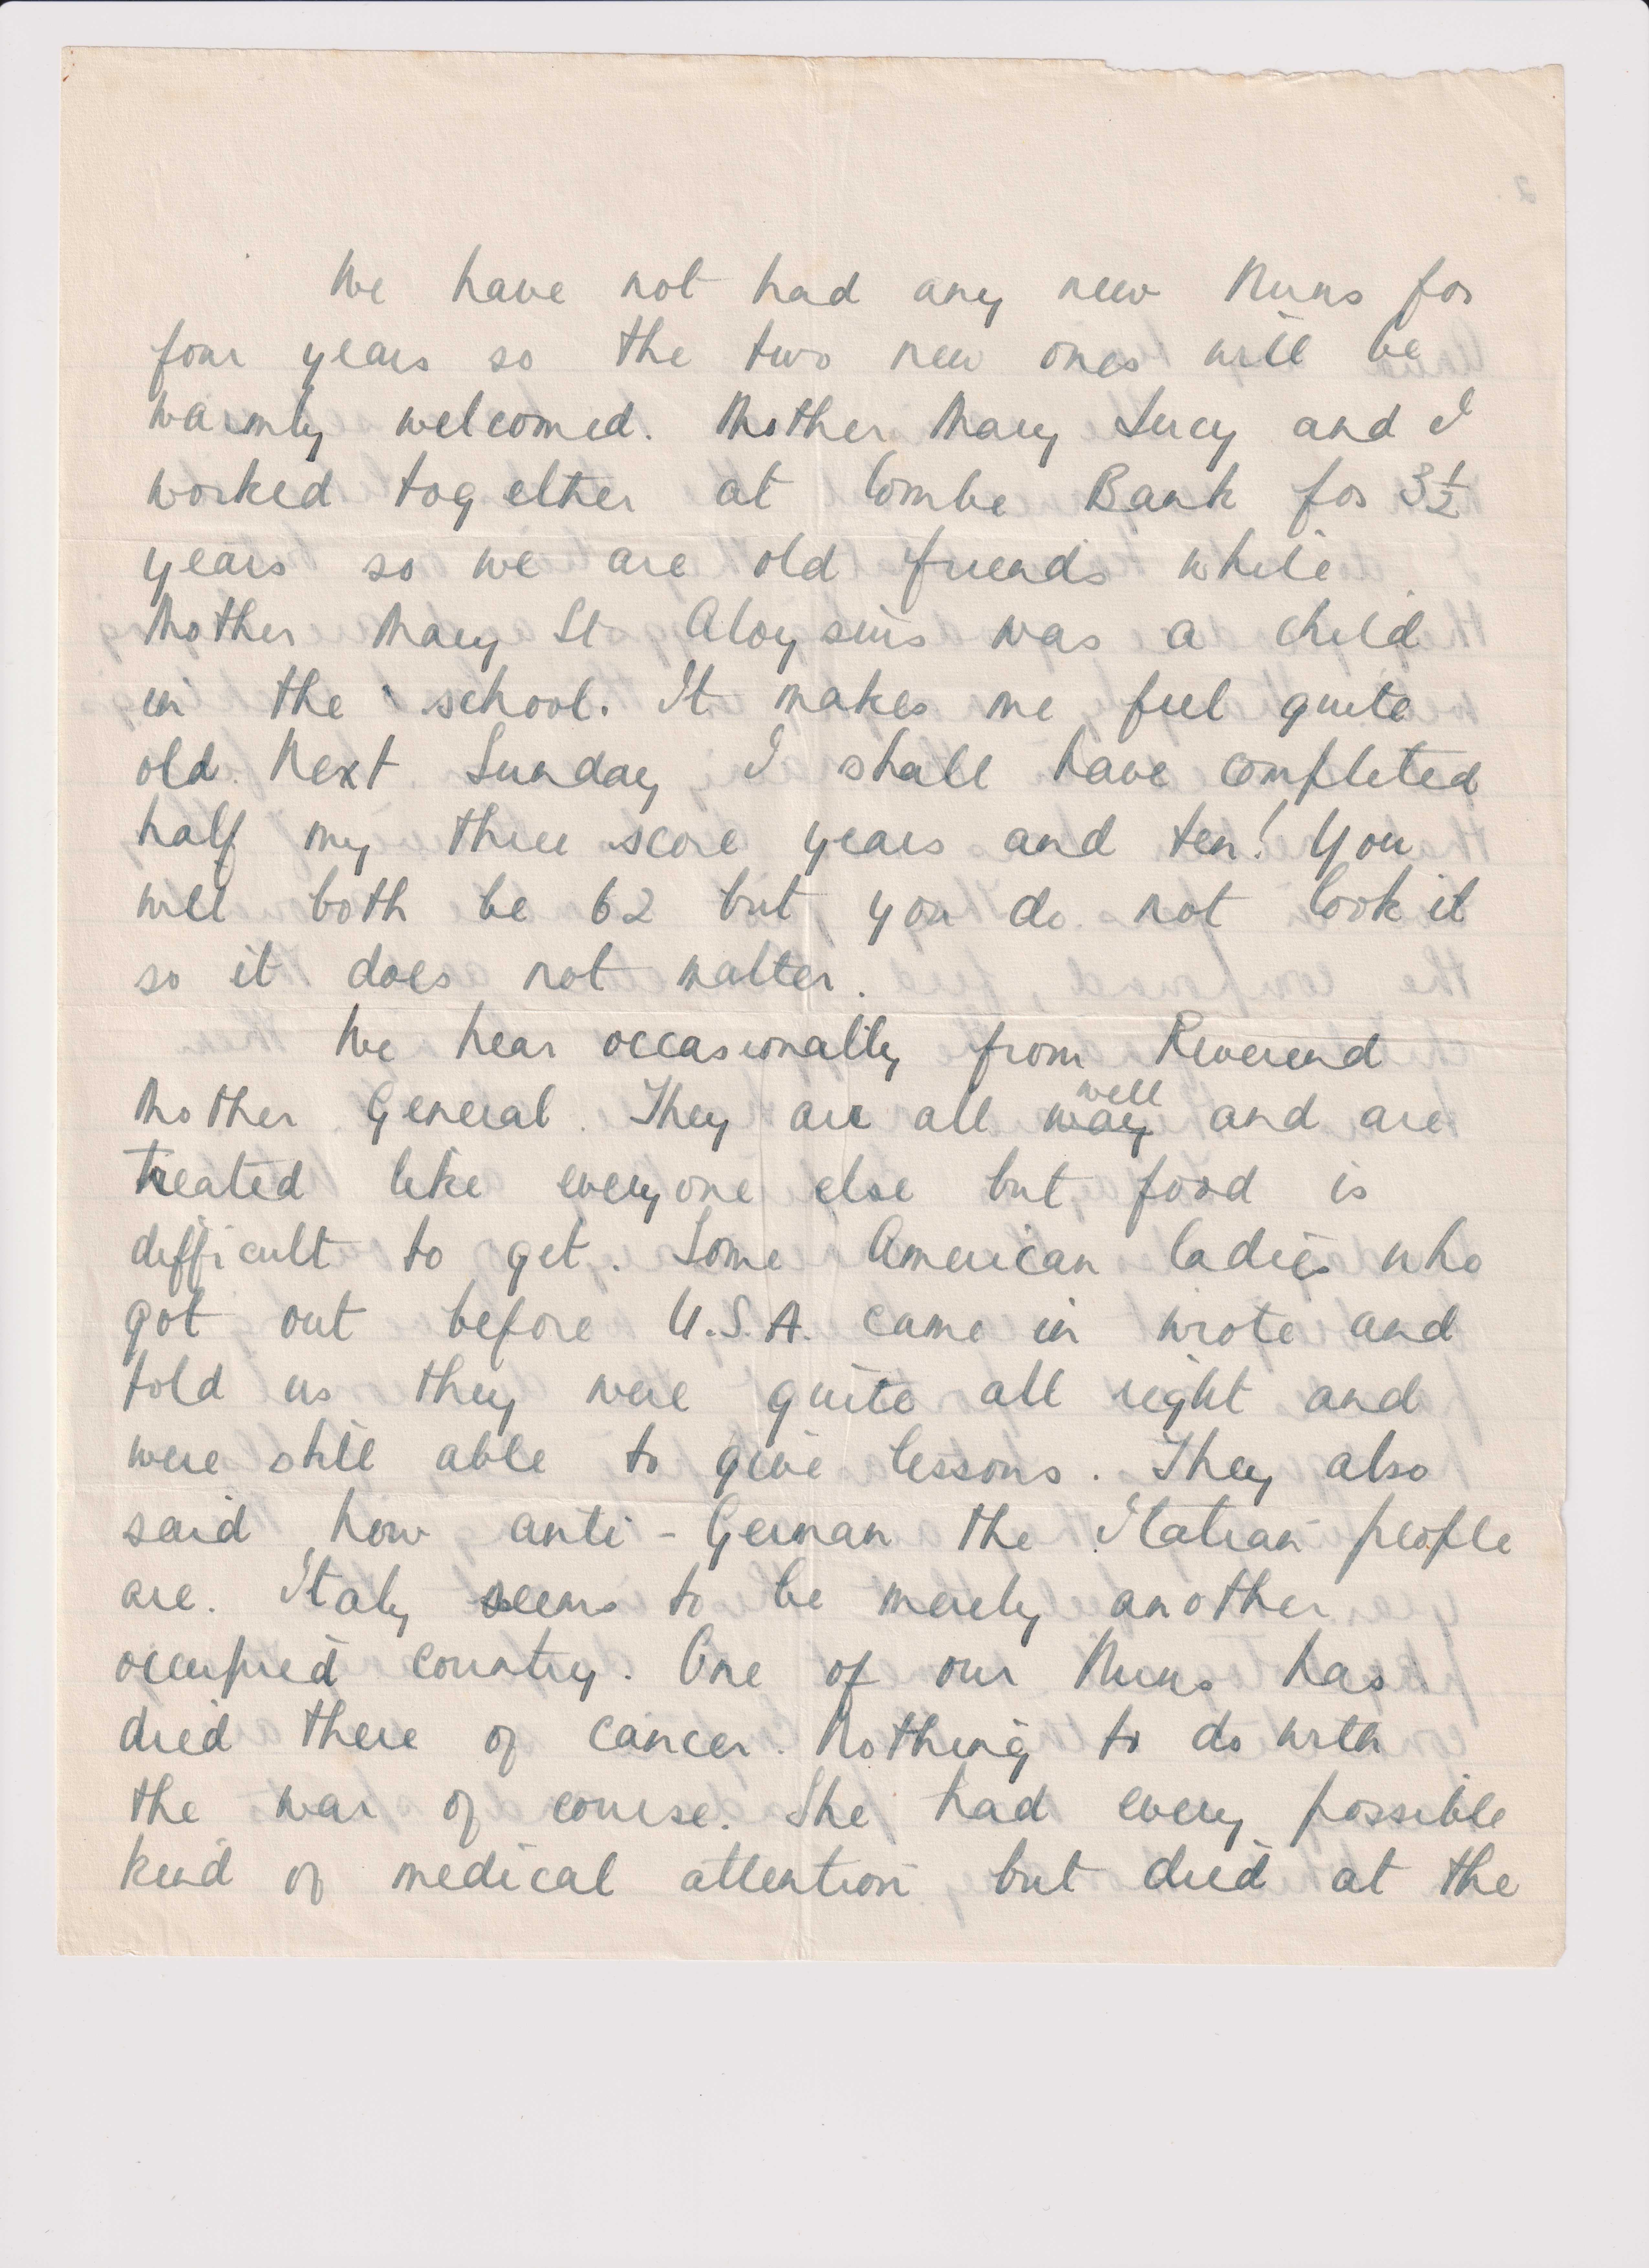 We have not had any new Nuns for
four years so the two new ones will be
warmly welcomed. Mother Mary Lucy and I
worked together at Combe Bank for 3½
years so we are old friends while
Mother Mary St Aloysius was a child
in the school. It makes me feel quite
old. Next Sunday I shall have completed
half my three score years and ten! You
will both be 62 but you do not look it
so it does not matter.
We hear occasionally from Reverend
Mother General. They are all way well and are
treated like everyone else but food is
difficult to get. Some American ladies who
got out before U.S.A. came in wrote and
told us they were quite all right and
were still able to give lessons. They also
said how anti-German the Italian people
are. Italy seems to be merely another
occupied country. One of our Nuns has
died there of cancer. Nothing to do with
the war of course. She had every possible
kind of medical attention but died at the